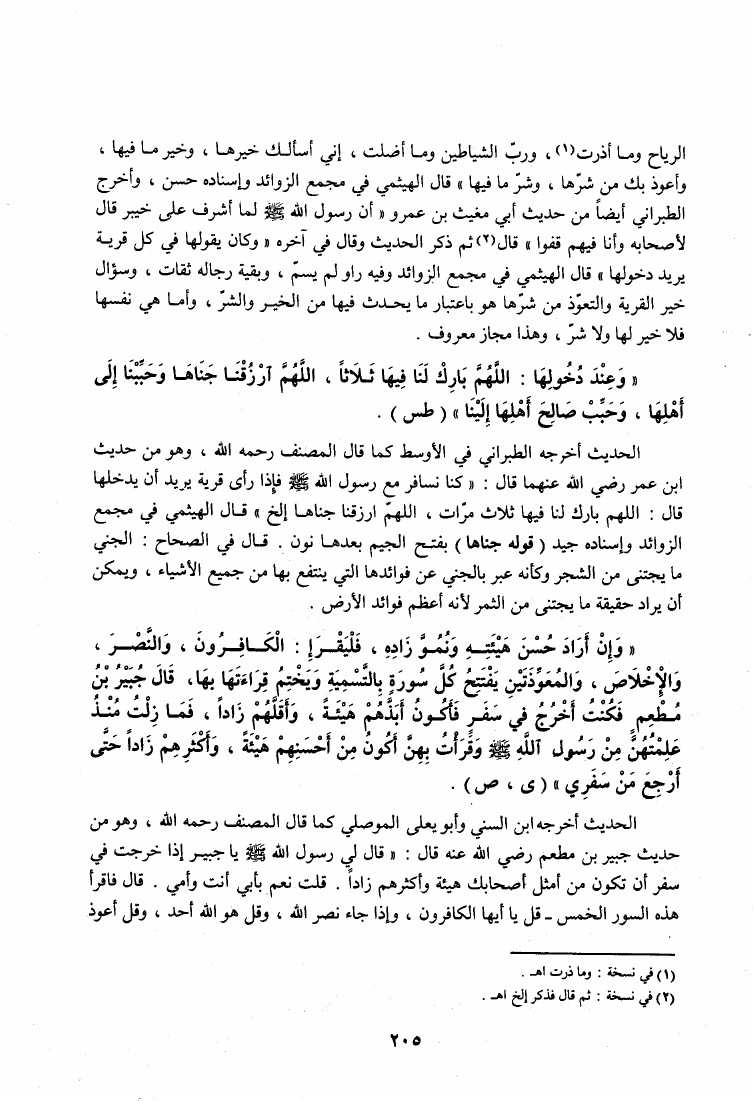 الرياح وما أذرت(١) ، وربّ الشياطين وما أضلت ، إني أسألك خيرها ، وخير ما فيها ،
وأعوذ بك من شرّها ، وشرّ ما فيها » قال الهيثمي في مجمع الزوائد وإسناده حسن ، وأخرج
الطبراني أيضاً من حديث أبي مغيث بن عمرو « أن رسول الله ﷺ لما أشرف على خيبر قال
لأصحابه وأنا فيهم قفوا » قال(٢) ثم ذكر الحديث وقال في آخره « وكان يقولها في كل قرية
يريد دخولها » قال الهيثمي في مجمع الزوائد وفيه راو لم يسمّ ، وبقية رجاله ثقات ، وسؤال
خير القرية والتعوّذ من شرّها هو باعتبار ما يحدث فيها من الخير والشرّ ، وأما هي نفسها
فلا خير لها ولا شرّ ، وهذا مجاز معروف .
« وَعِنْدَ دُخُولِهَا : اللَّهُمَّ بَارِكْ لَنَا فِيهَا ثَلاَثاً ، اللَّهُمَّ ٱرْزُقْنَا جَنَاهَا وَحَبِّبْنَا إِلَى
أَهْلِهَا ، وَحَبِّبْ صَالِحَ أَهْلِهَا إِلَيْنَا » ( طس ) .
الحديث أخرجه الطبراني في الأوسط كما قال المصنف رحمه الله ، وهو من حديث
ابن عمر رضي الله عنهما قال : « كنا نسافر مع رسول الله ﷺ فإذا رأى قرية يريد أن يدخلها
قال : اللهم بارك لنا فيها ثلاث مرّات ، اللهمّ ارزقنا جناها إلخ » قال الهيثمي في مجمع
الزوائد وإسناده جيد ( قوله جناها ) بفتح الجيم بعدها نون . قال في الصحاح : الجني
ما يجتنى من الشجر وكأنه عبر بالجني عن فوائدها التي ينتفع بها من جميع الأشياء ، ويمكن
أن يراد حقيقة ما يجتنى من الثمر لأنه أعظم فوائد الأرض .
« وَإِنْ أَرَادَ حُسْنَ هَيْئَتِهِ وَنُمُوَّ زَادِهِ ، فَلْيَقْرَإِ : الْكَافِرُونَ ، وَالنَّصْرَ ،
وَالإِخْلاَصَ ، وَالْمُعَوِّذَتَيْنِ يَفْتَتِحُ كُلَّ سُورَةٍ بِالتَّسْمِيَةِ وَيَخْتِمُ قِرَاءَتَهَا بِهَا، قَالَ جُبَيْرُ بْنُ
مُطْعِمٍ فَكُنْتُ أَخْرُجُ في سَفَرٍ فَأَكُونُ أَبَذَّهُمْ هَيْئَةً ، وَأَقَلَّهُمْ زَاداً ، فَمَا زِلْتُ مُنْذُ
عَلِمْتُهُنَّ مِنْ رَسُولِ ٱللَّهِ ﷺ وَقَرَأْتُ بِهِنَّ أَكُونُ مِنْ أَحْسَنِهِمْ هَيْئَةً ، وَأَكْثَرِهِمْ زَاداً حَتَّى
أَرْجِعَ مَنْ سَفَرِي » ( ى ، ص ) .
الحديث أخرجه ابن السني وأبو يعلى الموصلي كما قال المصنف رحمه الله ، وهو من
حديث جبير بن مطعم رضي الله عنه قال : « قال لي رسول الله ﷺ يا جبير إذا خرجت في
سفر أن تكون من أمثل أصحابك هيئة وأكثرهم زاداً . قلت نعم بأبي أنت وأمي . قال فاقرأ
هذه السور الخمس ـ قل يا أيها الكافرون ، وإذا جاء نصر الله ، وقل هو الله أحد ، وقل أعوذ
(١) في نسخة : وما ذرت اهـ .
(٢) في نسخة : ثم قال فذكر إلخ اهـ .
٢٠٥